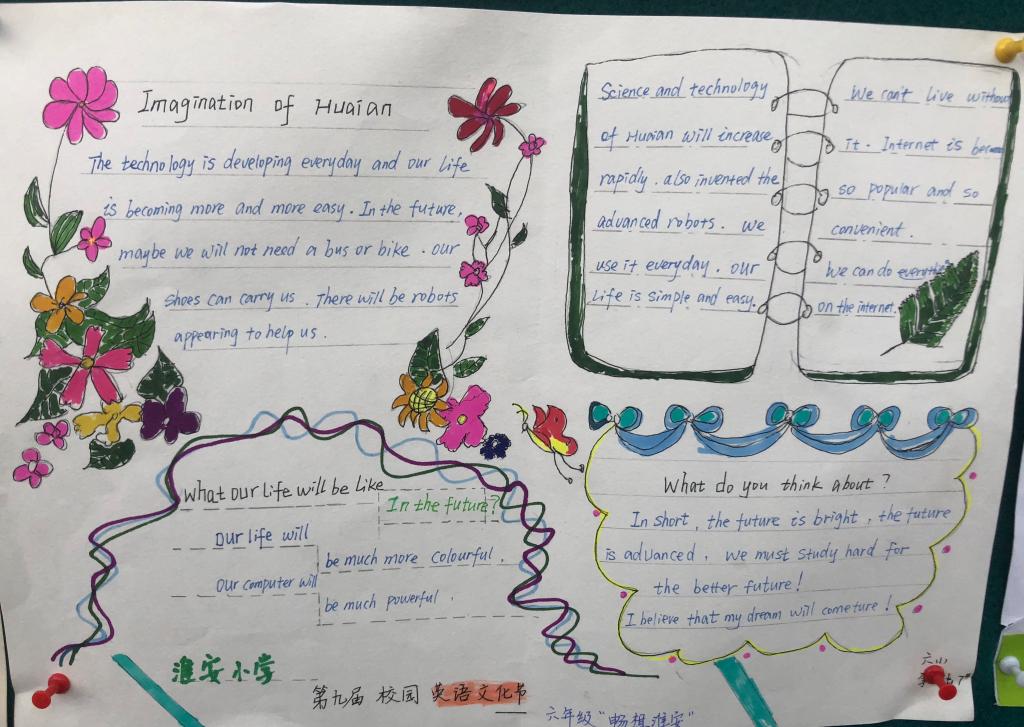 Imagination of Huaian
The technology is developing everyday and our life
is becoming more and more easy. In the future,
maybe we will not need a bus or bike. our
shoes can carry us. There will be robots
appearing to help us.
Science and technology
of Huaian will increase
rapidly. also invented the
advanced robots. we
use it everyday. our
Life is simple and easy.
We can't live without
it. Internet is
so popular and so
convenient.
We can do
on the internet.
What our life will be like
In the future?
Our life will
be much more colourful.
Our computer will
be much powerful.
What do you think about?
In short, the future is bright, the future
is advanced. We must study hard for
the better future!
I believe that my dream will come ture!
淮安小学
第九届 校园 英语文化节
六年级“畅想淮安”